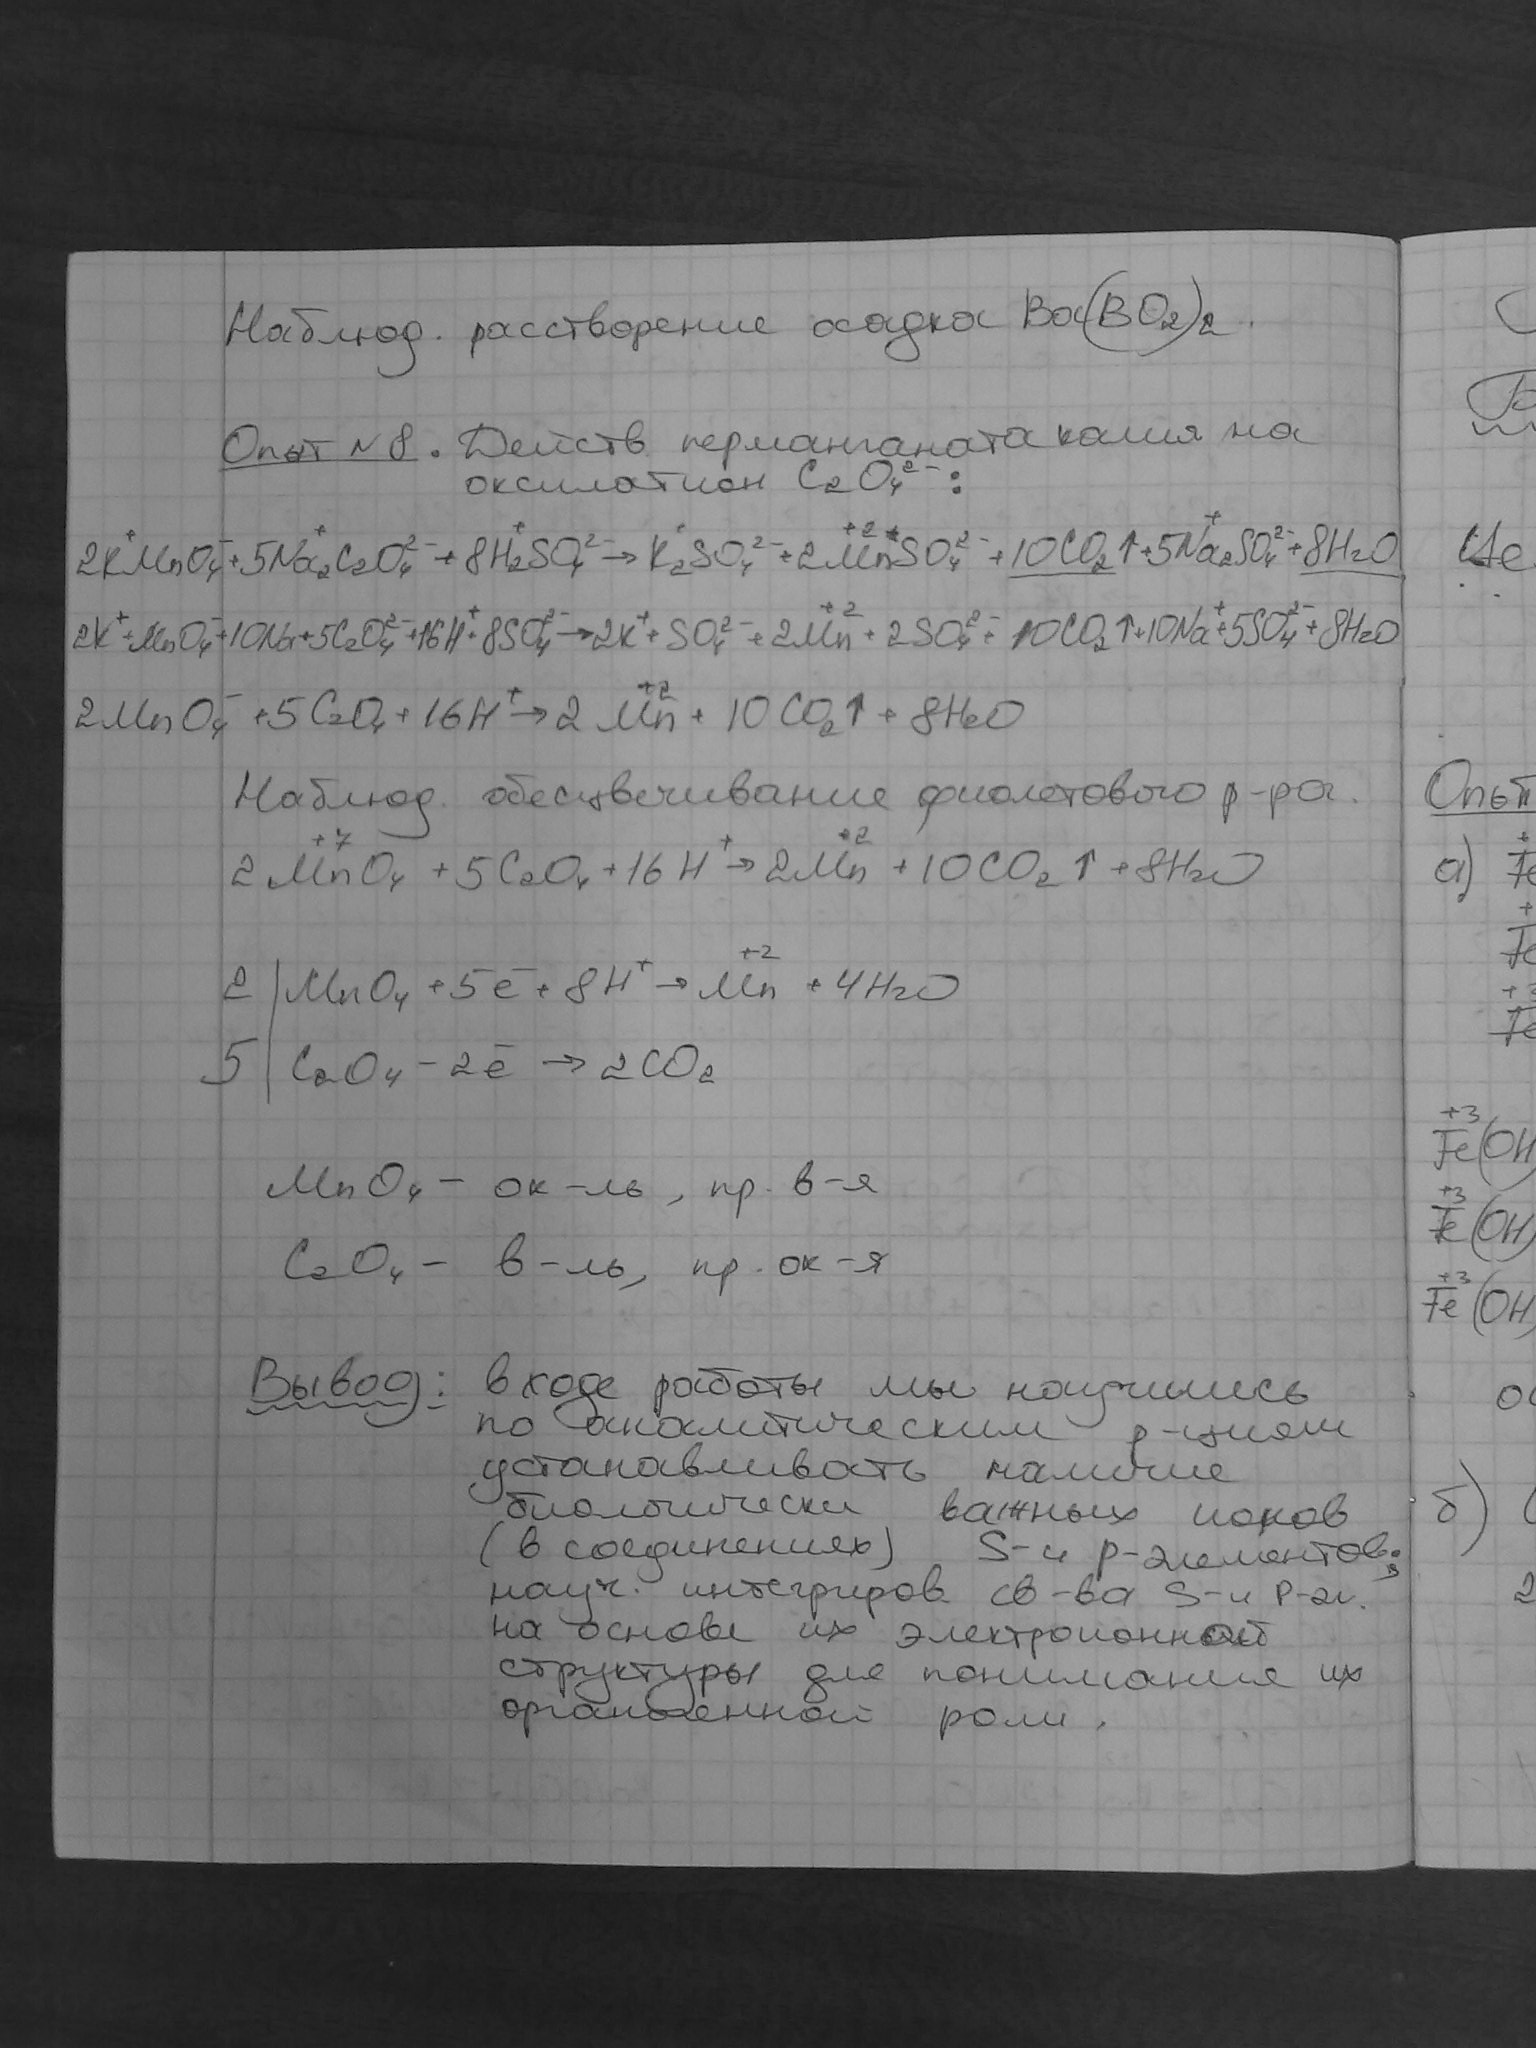 Наблюд. расстворение осадка Ba(BO₂)₂.
Опыт №8. Действ перманганата калия на
оксилатион C₂O₄²⁻:
2K⁺MnO₄⁻+5Na₂⁺C₂O₄²⁻+8H₂⁺SO₄²⁻→K₂⁺SO₄²⁻+2Mn⁺²SO₄²⁻+10CO₂↑+5Na₂⁺SO₄²⁻+8H₂O
2K⁺+MnO₄⁻+10Na+5C₂O₄²⁻+16H⁺+8SO₄²⁻→2K⁺+SO₄²⁻+2Mn⁺²+2SO₄²⁻+10CO₂↑+10Na⁺+5SO₄²⁻+8H₂O
2MnO₄⁻+5C₂O₄+16H⁺→2Mn⁺²+10CO₂↑+8H₂O
Наблюд. обесцвечивание фиолетового р-ра.
2Mn⁺⁷O₄+5C₂O₄+16H⁺→2Mn⁺²+10CO₂↑+8H₂O
2|MnO₄+5ē+8H⁺→Mn⁺²+4H₂O
5|C₂O₄-2ē→2CO₂
MnO₄ - ок-ль, пр. в-я
C₂O₄ - в-ль, пр. ок-я
Вывод: в ходе работы мы научились
по аналитическим р-циям
устанавливать наличие
биологически важных ионов
(в соединениях) S-и p-элементов;
науч. интегриров св-ва S-и P-эл.
на основе их электроионной
структуры для понимания их
роли.
Опыт
а)
Fe⁺³(OH
Fe⁺³(OH
Fe⁺³(OH
ос
б) (
2